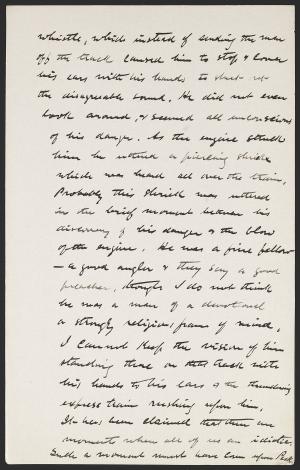 whistle, which instead of sending the man
off the track caused him to stop & cover
his ears with his hands to shut out
the disagreeable sound. He did not even
look around, & seemed all unconscious
of his danger. As the engine struck
him he uttered a piercing shriek
which was heard all over the train.
Probably this shriek was uttered
in the brief moment between his
discovery of his danger & the blow
of the engine. He was a fine fellow
— a good angler & they say a good
preacher, though I do not think
he was a man of a devotional
or strongly religious frame of mind.
I cannot keep the vision of him
standing there on that track with
his hands to his ears & the thundering
express train rushing upon him.
It has been claimed that there are
moments when all of us are idiotic.
Such a moment must have come upon